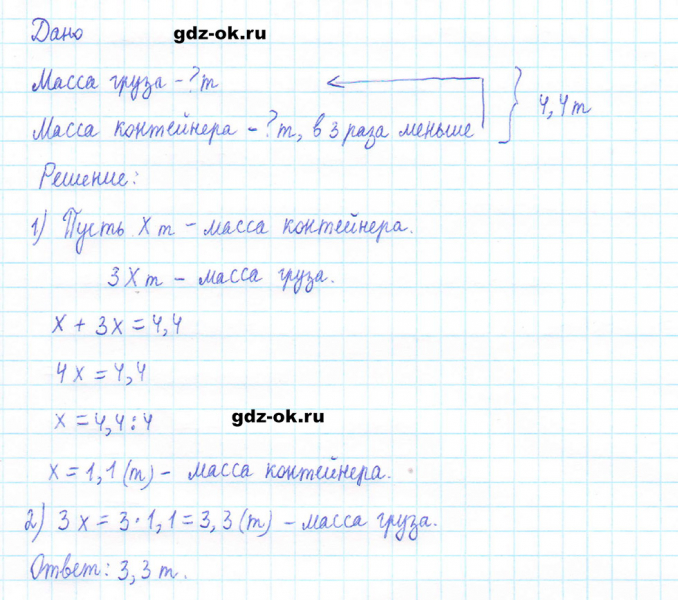 Дано gdz-ok.ru
Масса груза - ? т
Масса контейнера - ? т, в 3 раза меньше } 4,4 т
Решение:
1) Пусть X т - масса контейнера.
3X т - масса груза.
x + 3x = 4,4
4x = 4,4
x = 4,4 : 4
gdz-ok.ru
x = 1,1 (т) - масса контейнера.
2) 3x = 3 · 1,1 = 3,3 (т) - масса груза.
Ответ: 3,3 т.